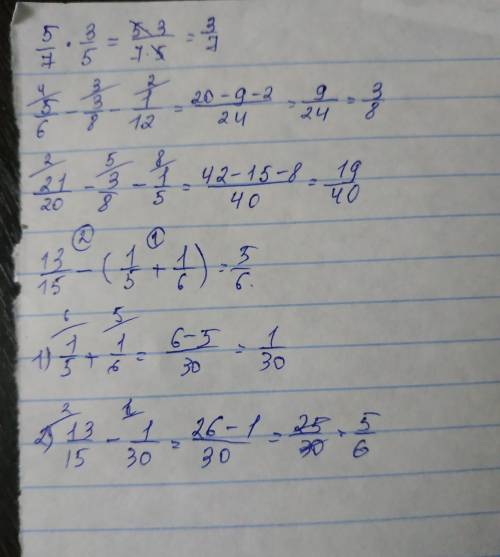 5/7 · 3/5 = 5·3/7·5 = 3/7
5/6 (4) - 3/8 (3) - 1/12 (2) = 20-9-2/24 = 9/24 = 3/8
21/20 (2) - 3/8 (5) - 1/5 (8) = 42-15-8/40 = 19/40
13/15 -(2) (1/5 +(1) 1/6) = 5/6.
1) 1/5 (6) + 1/6 (5) = 6-5/30 = 1/30
2) 13/15 (2) - 1/30 (1) = 26-1/30 = 25/30 = 5/6